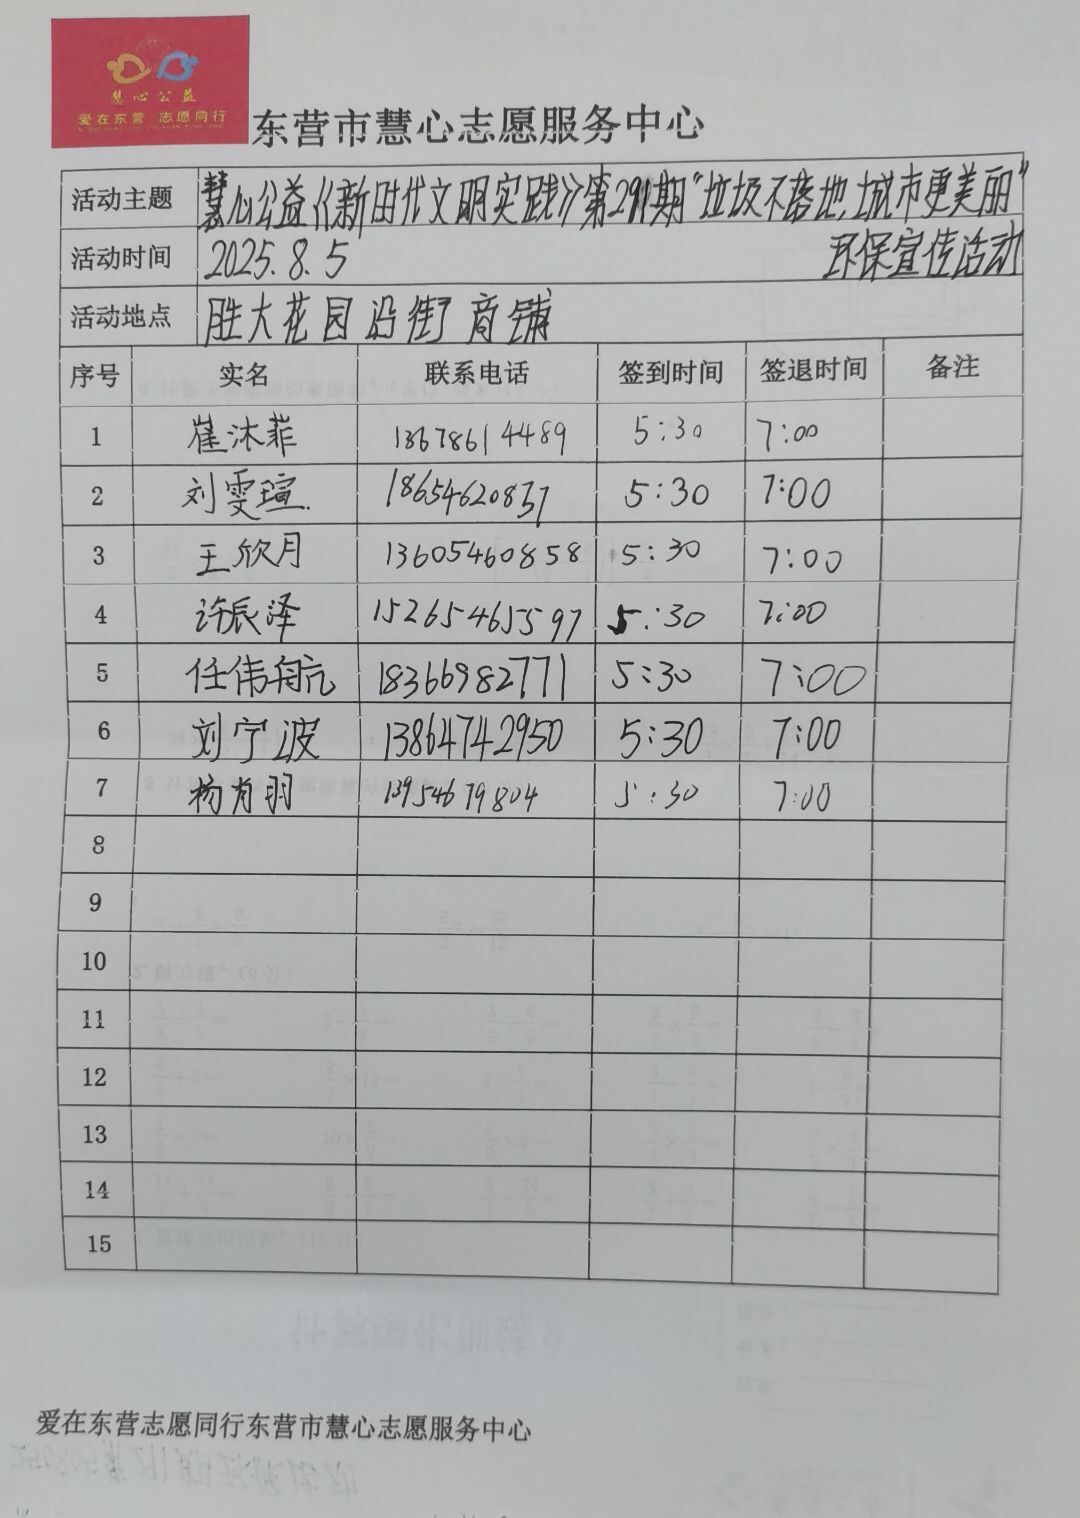 慧心公益
爱在东营 志愿同行
东营市慧心志愿服务中心
活动主题 慧心公益《新时代文明实践》第291期"垃圾不落地,城市更美丽"
活动时间 2025.8.5 环保宣传活动
活动地点 胜大花园沿街商铺
序号 实名 联系电话 签到时间 签退时间 备注
1 崔沐菲 13678614489 5:30 7:00
2 刘雯瑄 18654620837 5:30 7:00
3 王欣月 13605460858 5:30 7:00
4 许辰泽 15265465597 5:30 7:00
5 任伟航 18366982771 5:30 7:00
6 刘宁波 13864742950 5:30 7:00
7 杨肖羽 13954679804 5:30 7:00
8
9
10
11
12
13
14
15
爱在东营志愿同行东营市慧心志愿服务中心